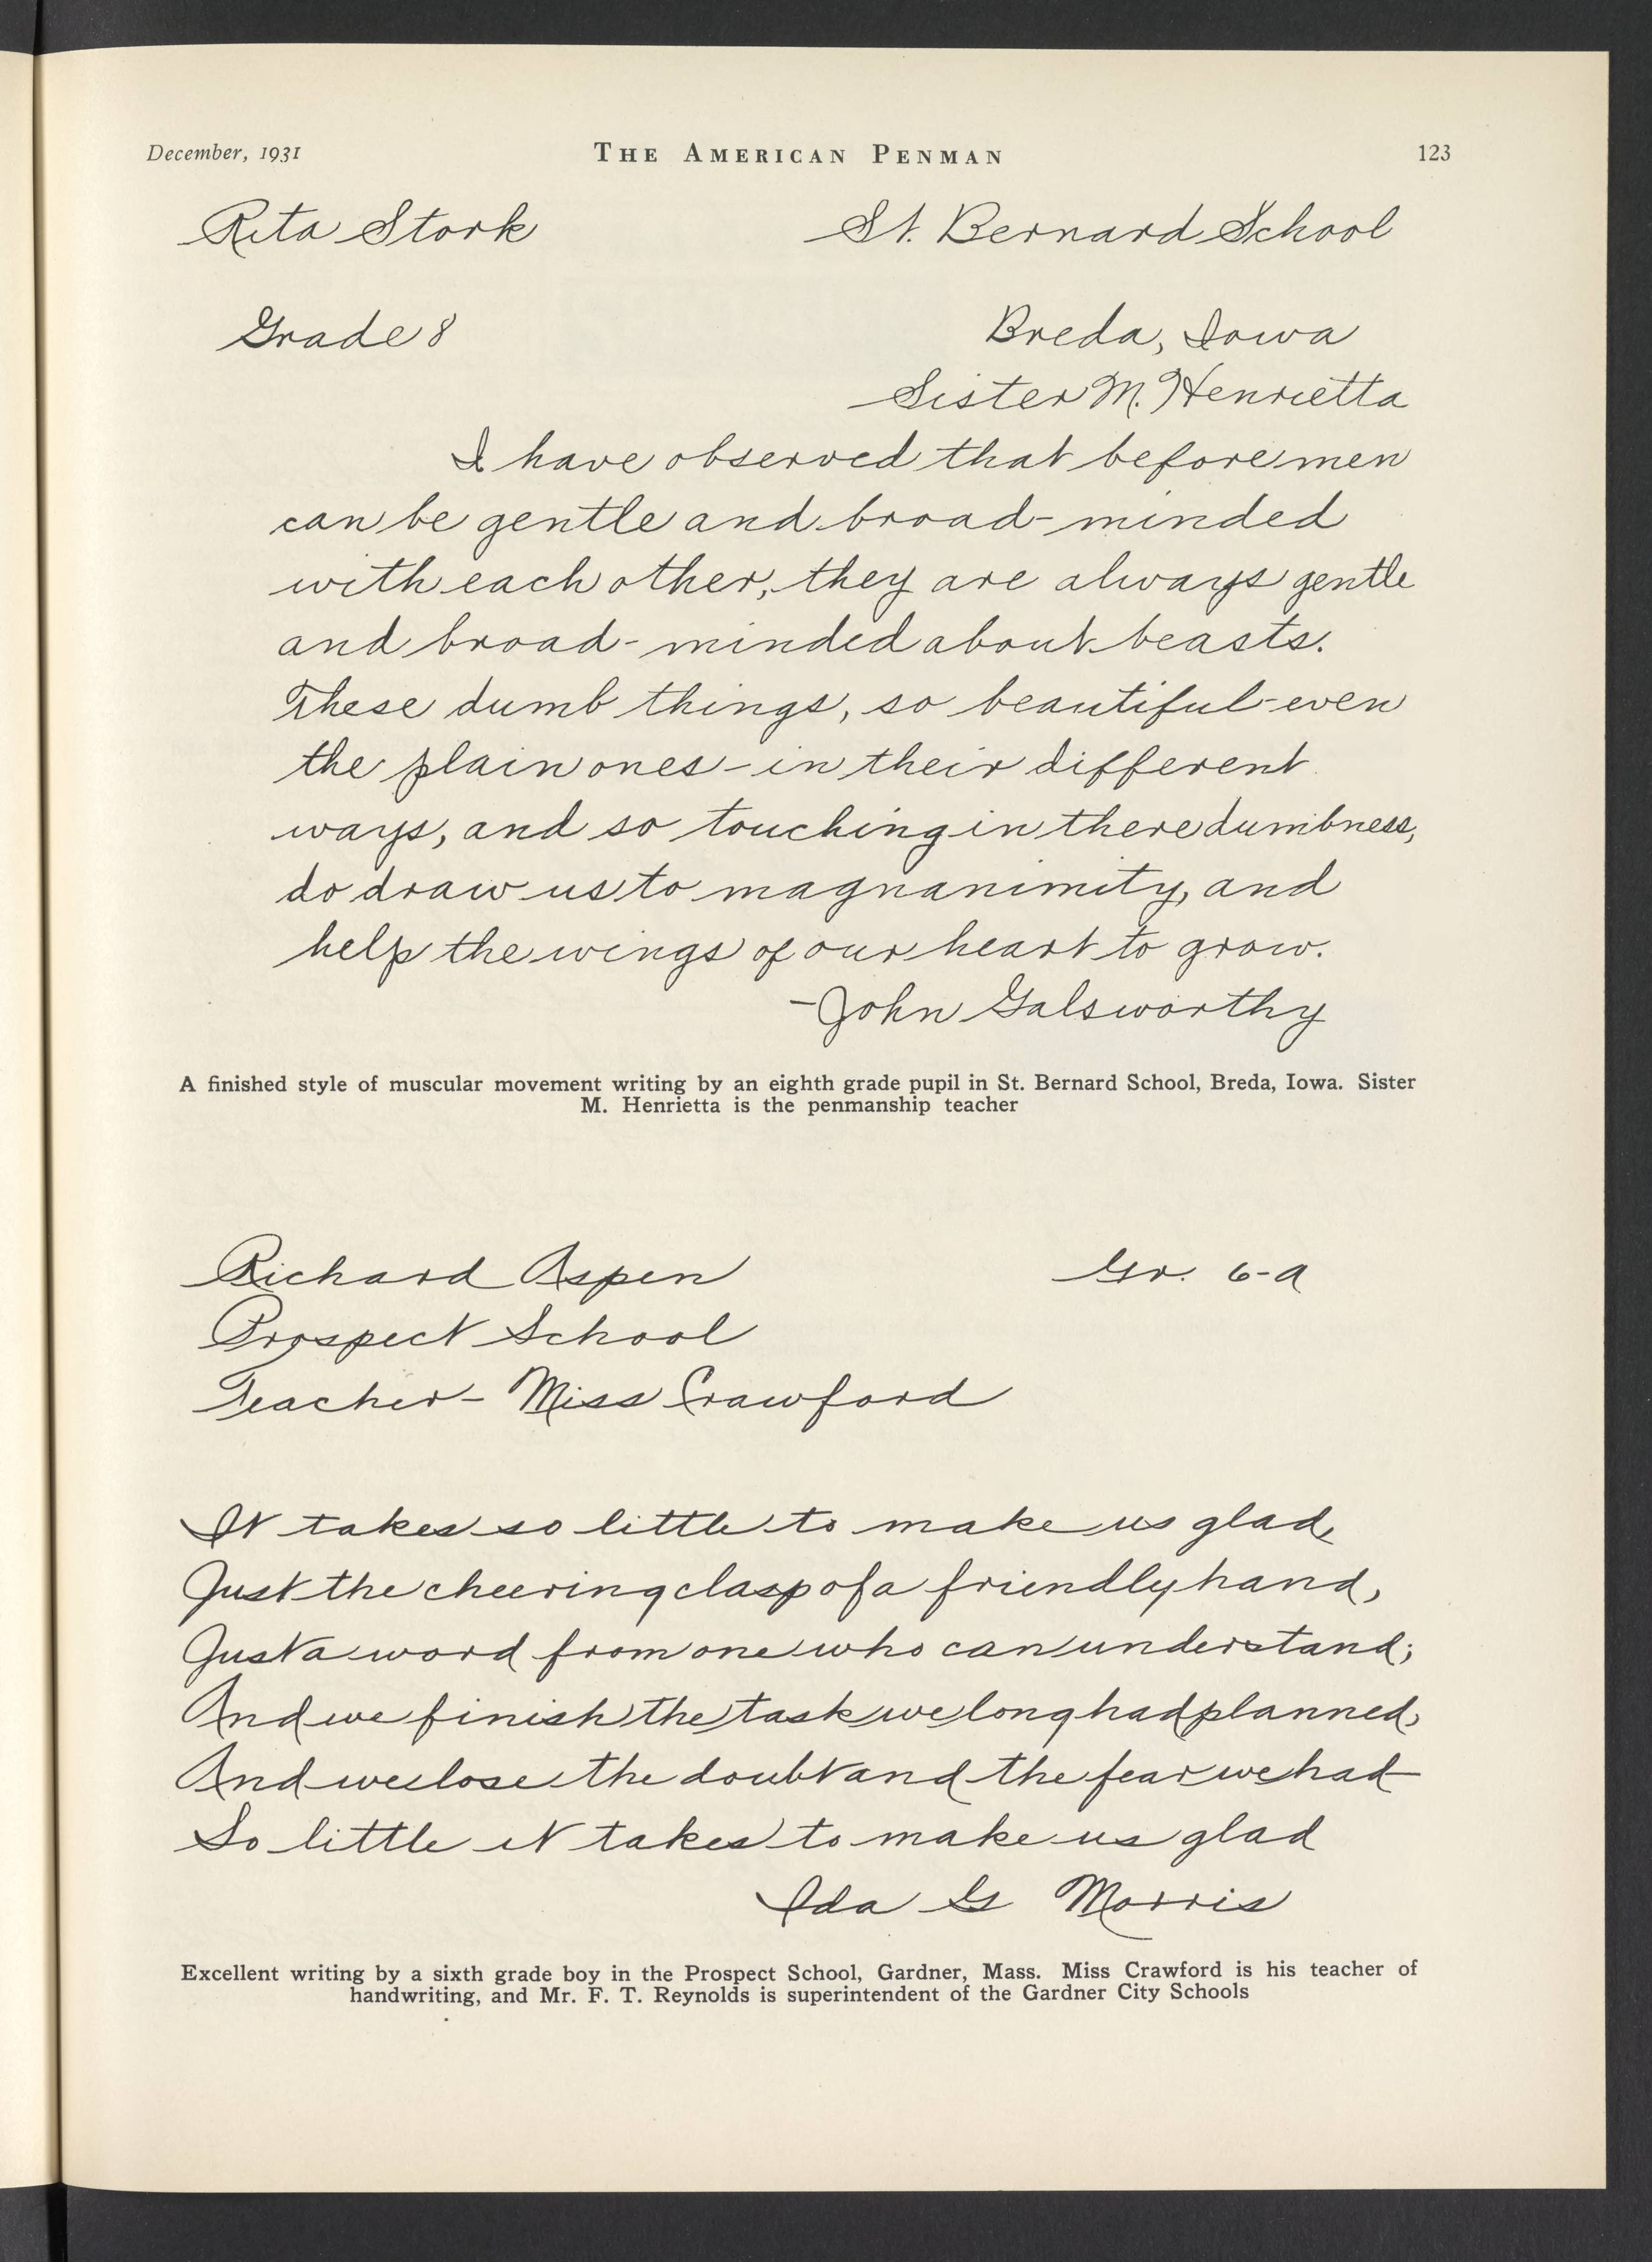 December, 1931 THE AMERICAN PENMAN 123
Rita Stork St. Bernard School
Grade 8 Breda, Iowa
Sister M. Henrietta
I have observed that before men
can be gentle and broad-minded
with each other, they are always gentle
and broad-minded about beasts.
These dumb things, so beautiful-even
the plain ones-in their different
ways, and so touching in there dumbness,
do draw us to magnanimity, and
help the wings of our heart to grow.
-John Galsworthy
A finished style of muscular movement writing by an eighth grade pupil in St. Bernard School, Breda, Iowa. Sister
M. Henrietta is the penmanship teacher
Richard Aspen Gr. 6-A
Prospect School
Teacher- Miss Crawford
It takes so little to make us glad,
Just the cheering clasp of a friendly hand,
Just a word from one who can understand;
And we finish the task we long had planned,
And we lose the doubt and the fear we had
So little it takes to make us glad
Ida G Morris
Excellent writing by a sixth grade boy in the Prospect School, Gardner, Mass. Miss Crawford is his teacher of
handwriting, and Mr. F. T. Reynolds is superintendent of the Gardner City Schools